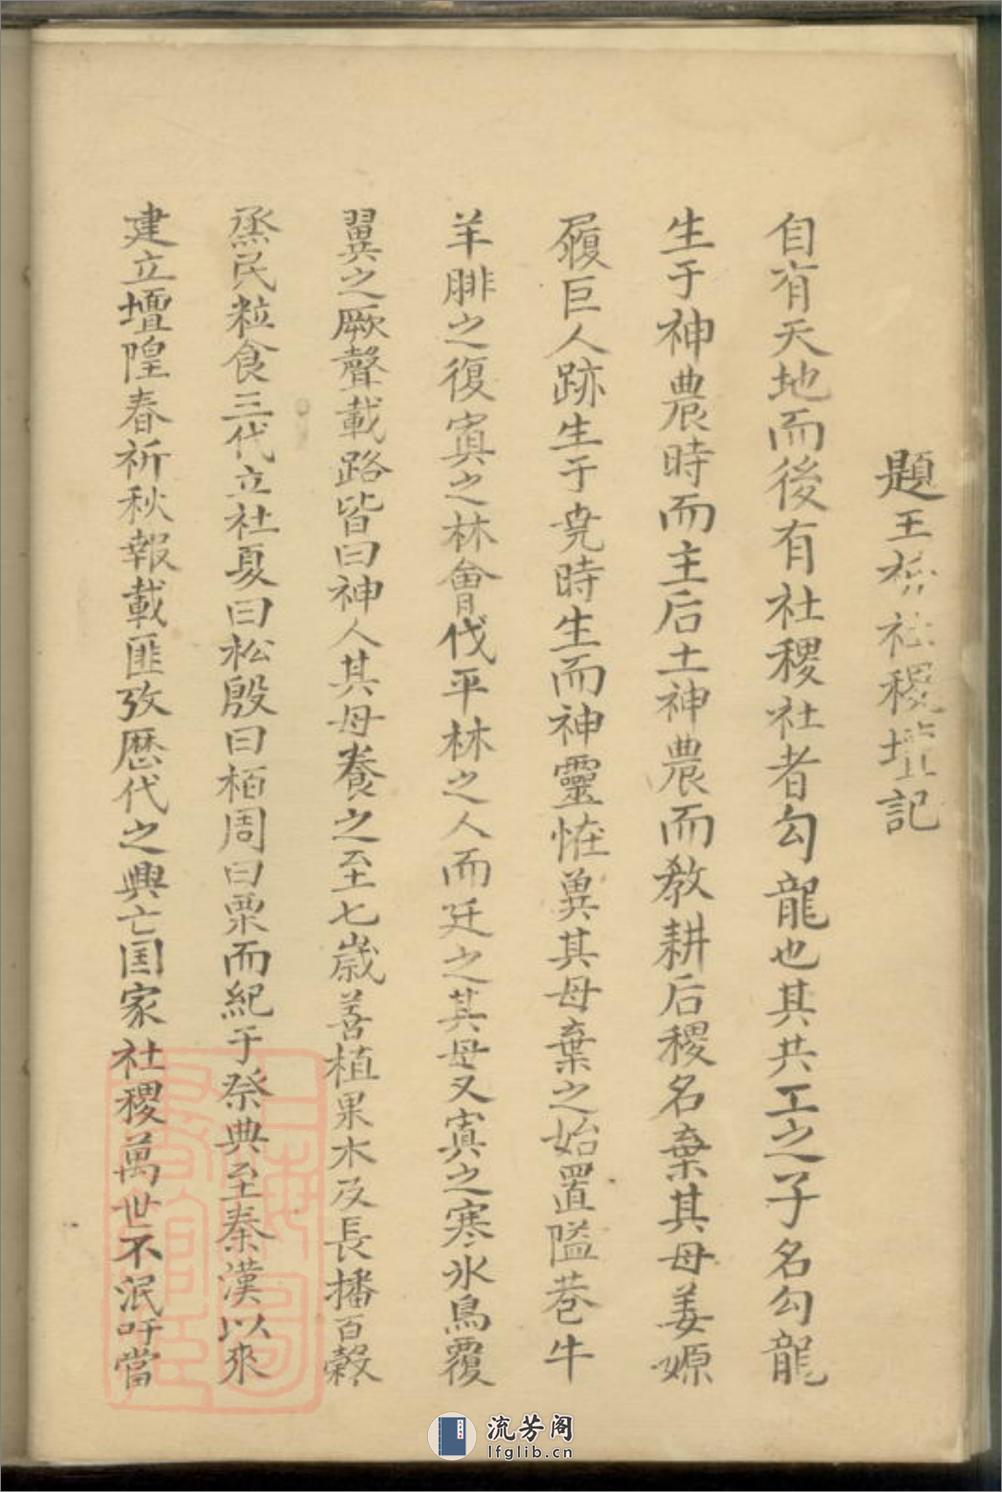 題王社稷壇記
自有天地而後有社稷社者勾龍也其共工之子名勾龍
生于神農時而主后土神農而教耕后稷名棄其母姜嫄
履巨人跡生于堯時生而神靈恠異其母棄之始置隘巷牛
羊腓之復寘之林會伐平林之人而廷之其母又寘之寒氷鳥覆
翼之厥聲載路皆曰神人其母養之至七歲善植果木及長播百穀
烝民粒食三代立社夏曰松殷曰栢周曰栗而紀于祭典至秦漢以來
建立壇隍春祈秋報載匪攷歷代之興亡囯家社稷萬世不泯吁當
上海圖書館藏
流芳阁
lfglib.cn